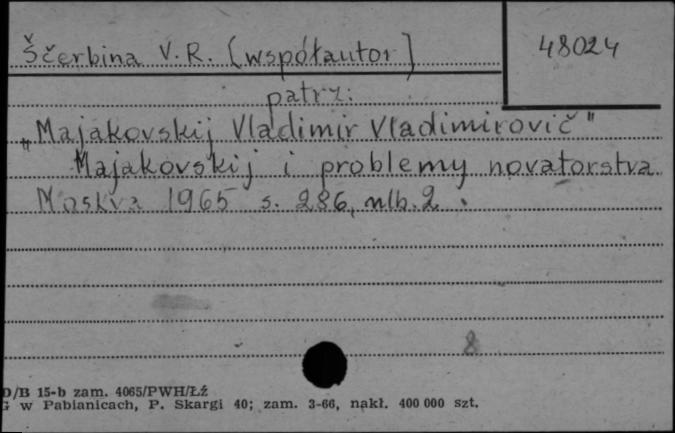 Ščerbina V. R. [współautor]
48024
patrz:
„Majakovskij Vladimir Vladimirovič"
Majakovskij i problemy novatorstva
Moskva 1965 s. 286, nlb. 2.
8
D/B 15-b zam. 4065/PWH/Łź
G w Pabianicach, P. Skargi 40; zam. 3-66, nakł. 400 000 szt.